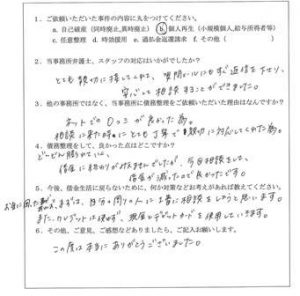 1. ご依頼いただいた事件の内容に丸をつけてください。
a. 自己破産（同時廃止、異時廃止） b. 個人再生（小規模個人、給与所得者等）
c. 任意整理 d. 時効援用 e. 過払金返還請求 f. その他（ ）
2. 当事務所弁護士、スタッフの対応はいかがでしたか？
とても親切に接してくれ、質問メールにもすぐ返信を下さり、
安心して相談することができました。
3. 他の事務所ではなく、当事務所に債務整理をご依頼いただいた理由はなんですか？
ネットでの口コミが良かった為。
相談に来た時にとても丁寧で親切に対応してくれた為。
4. 債務整理をして、良かった点はどこですか？
どーピーど
借金に終わりがみえませんでしたが、今回相談をして、
借金が減ったので良かったです。
5. 今後、借金生活に戻らないために、何か対策などお考えがあれば教えてください。
お金に困った時まずは、自分の周りの人に上手に相談をしようと思います。
また、クレジットは使わず、現金とデビットカードを使用していきます。
6. その他、ご意見、ご感想などありましたら、ご記入お願いします。
この度は本当にありがとうございました。